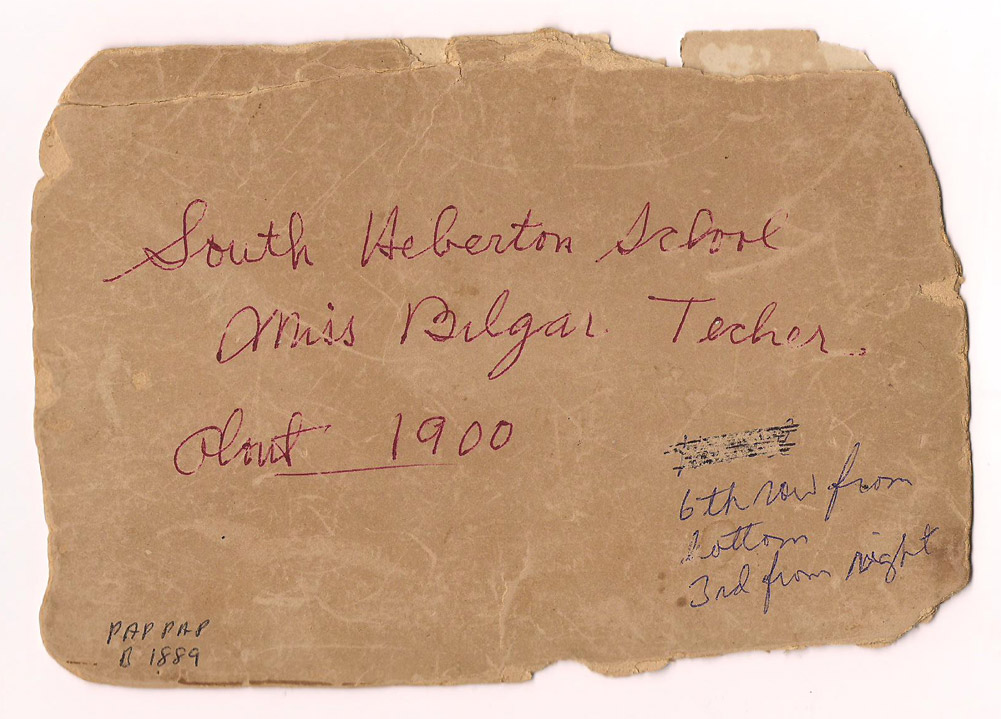 South Heberton School
Miss Bilgar Techer.
About 1900
6th row from
bottom
3rd from right
PAP PAP
B 1889